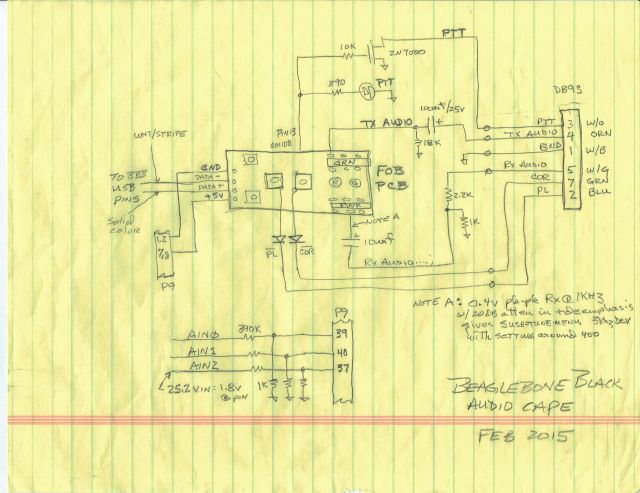 PTT
10K
2N7000
390
PTT
100uf/25V
DB9S
TX AUDIO
18K
PTT 3 W/O
TX AUDIO 4 ORN
GND 1 W/B
RX AUDIO 5 W/G
COR 7 GRN
PL 2 BLU
WHT/STRIPE
PIN13
CM108
TO BBB
USB
PINS
Solid
color
GND
DATA-
DATA+
+5V
GRN
PNK
FOB
PCB
1,2
7,8
P9
NOTE A
PL
COR
10uf
RX AUDIO
2.2K
1K
NOTE A: 0.4V pk-pk RX @ 1KHz
w/20DB atten in + deemphasis
gives 3KHz Dev
with setting around 400
P9
AIN0 390K 39
AIN1 40
AIN2 37
25.2 VIN = 1.8V
@ pin
1K
BEAGLEBONE BLACK
AUDIO CAPE
FEB 2015